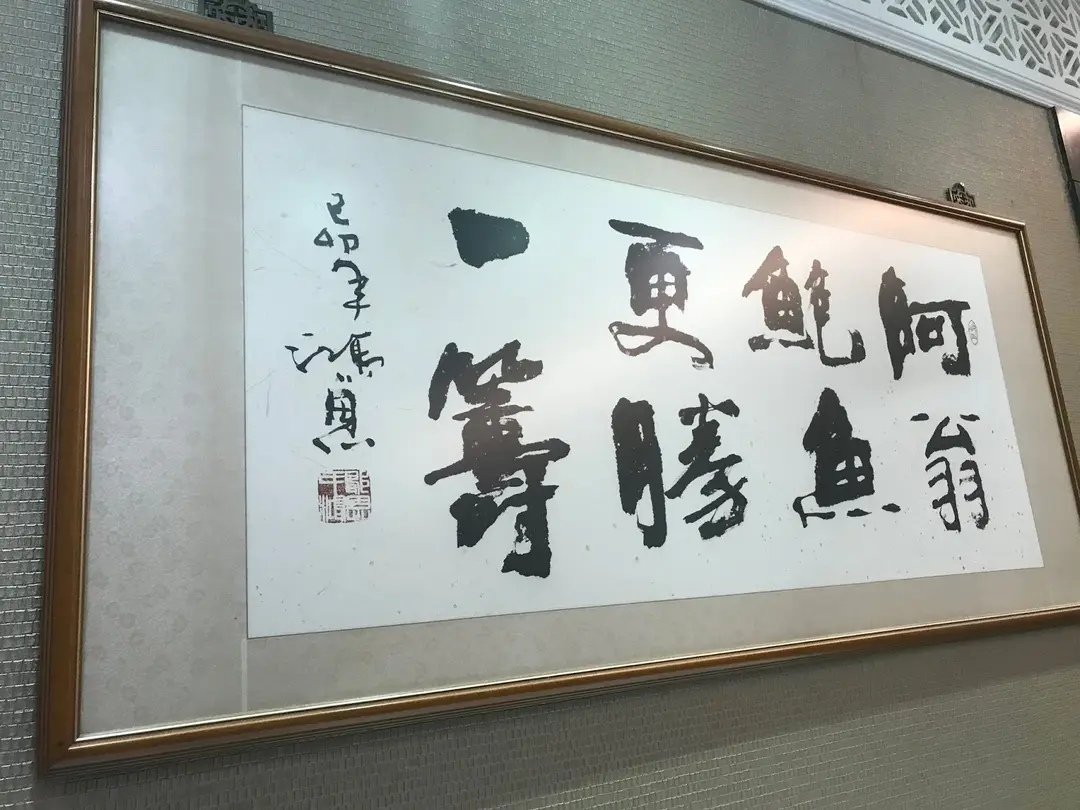 阿翁
鮑魚
更勝
一籌
己卯年
鴻